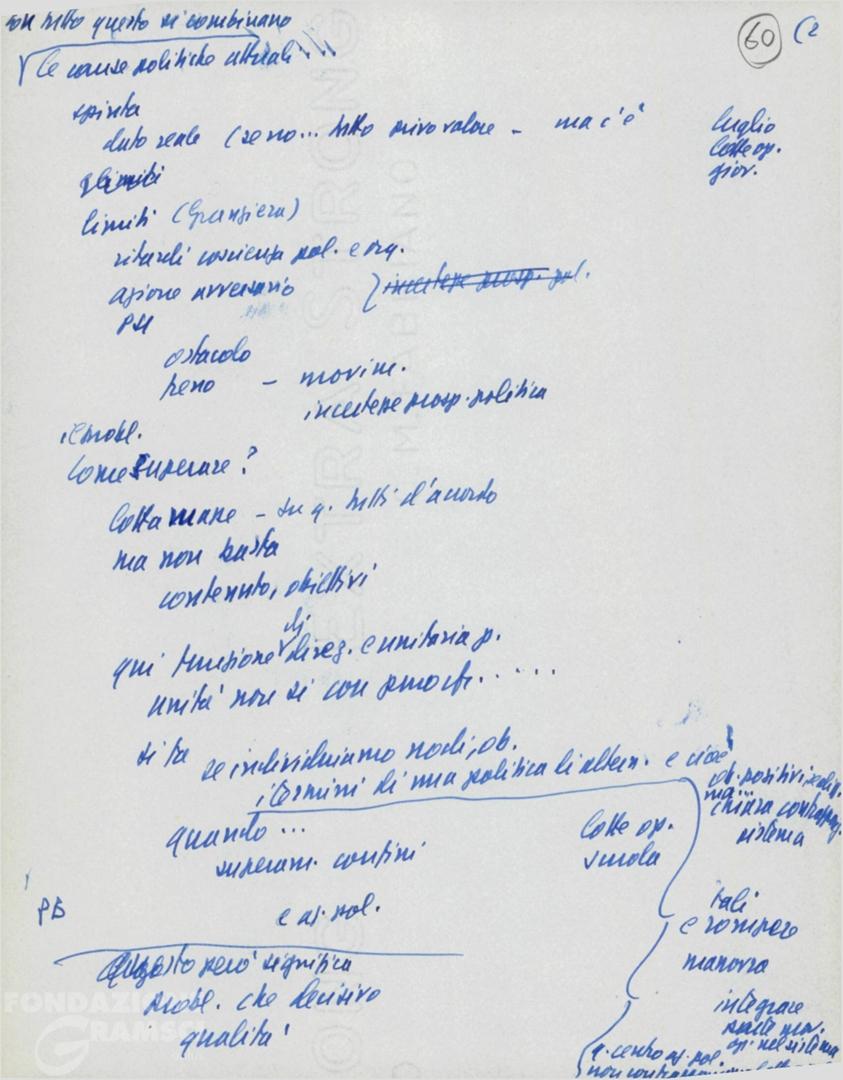 con tutto questo si combinano
60 (2
le cause politiche attuali
spinta
dato reale (se no... tutto privo valore - ma c'è
luglio
lotte op.
giov.
limiti
limiti (Granziera)
ritardi coscienza pol. e org.
azione avversario
incertezze prosp. pol.
PSI
ostacolo
freno - movim.
incertezze prosp. politica
il probl.
Come superare?
Lotta mane - su q. tutti d'accordo
ma non basta
contenuto, obiettivi
di
qui funzione direz. e unitaria p.
unità non si con
si fa
se individuiamo nodi, ob.
i termini di una politica di altern. e cioè
ob. positivi
ma...
chiara contrapp.
sistema
quando...
superam. confini
lotte op.
scuola
PB
e az. pol.
tali
e rompere
manovra
Questo però significa
probl. che decisivo
qualità
integrare
parte mov.
op. nel sistema
q. centro az. pol.
non
FONDAZIONE
GRAMSCI
EXTRA STRONG
FABRIANO